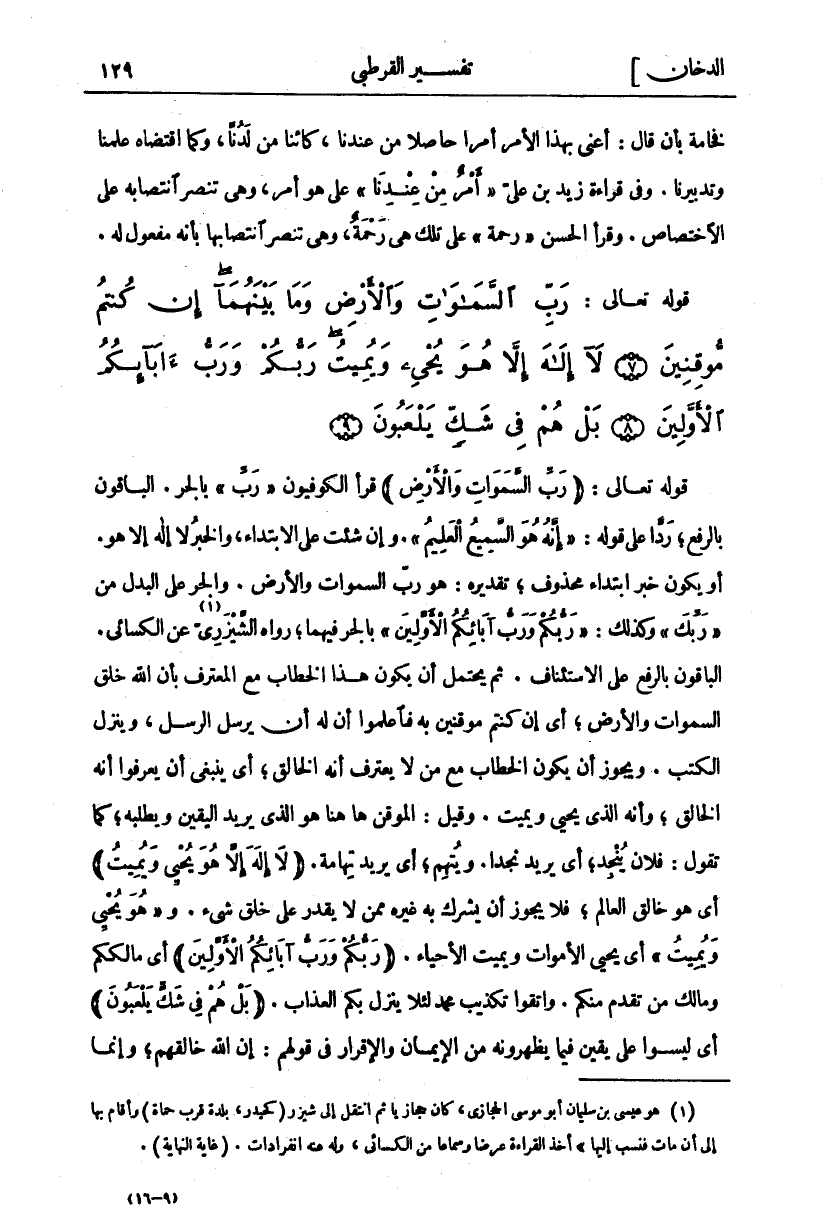 الدخان ] تفسير القرطبى ١٢٩
فخامة بأن قال : أعنى بهذا الأمر أمرا حاصلا من عندنا ، كائنا من لَدُنَّا ، وكما اقتضاه علمنا
وتدبيرنا . وفى قراءة زيد بن علىّ « أَمْرٌ مِنْ عِنْدِنَا » على هو أمر ، وهى تنصر ٱنتصابه على
الٱختصاص . وقرأ الحسن « رحمة » على تلك هى رَحْمَةٌ ، وهى تنصر ٱنتصابها بأنه مفعول له .
قوله تعـالى : رَبِّ ٱلسَّمَـٰوَٰتِ وَٱلْأَرْضِ وَمَا بَيْنَهُمَآۖ إِن كُنتُم
مُّوقِنِينَ ﴿٧﴾ لَآ إِلَـٰهَ إِلَّا هُوَ يُحْيِۦ وَيُمِيتُۖ رَبُّكُمْ وَرَبُّ ءَابَآئِكُمُ
ٱلْأَوَّلِينَ ﴿٨﴾ بَلْ هُمْ فِى شَكٍّ يَلْعَبُونَ ﴿٩﴾
قوله تعـالى : ﴿ رَبِّ السَّمَوَاتِ وَالْأَرْضِ ﴾ قرأ الكوفيون « رَبِّ » بالجر . البـاقون
بالرفع ؛ رَدًّا على قوله : « إِنَّهُ هُوَ السَّمِيعُ الْعَلِيمُ » . و إن شئت على الابتداء ، والخبرُ لا إله إلا هو.
أو يكون خبر ابتداء محذوف ؛ تقديره : هو ربّ السموات والأرض . والجر على البدل من
« رَبِّكَ » وكذلك : « رَبُّكُمْ وَرَبُّ آبَائِكُمُ الْأَوَّلِينَ » بالجر فيهما ؛ رواه الشَّيْزَرِىّ (١) عن الكسائى .
الباقون بالرفع على الاستئناف . ثم يحتمل أن يكون هـذا الخطاب مع المعترف بأن الله خلق
السموات والأرض ؛ أى إن كنتم موقنين به فٱعلموا أن له أن يرسل الرسـل ، وينزل
الكتب . ويجوز أن يكون الخطاب مع من لا يعترف أنه الخالق ؛ أى ينبغى أن يعرفوا أنه
الخالق ؛ وأنه الذى يحيى ويميت . وقيل : الموقن ها هنا هو الذى يريد اليقين ويطلبه ؛ كما
تقول : فلان يُنْجِد ؛ أى يريد نجدا . ويُتْهِم ؛ أى يريد تِهامة . ﴿ لَا إِلَهَ إِلَّا هُوَ يُحْيِى وَيُمِيتُ ﴾
أى هو خالق العالم ؛ فلا يجوز أن يشرك به غيره ممن لا يقدر على خلق شىء . و « هُوَ يُحْيِى
وَيُمِيتُ » أى يحيى الأموات ويميت الأحياء . ﴿ رَبُّكُمْ وَرَبُّ آبَائِكُمُ الْأَوَّلِينَ ﴾ أى مالككم
ومالك من تقدم منكم . واتقوا تكذيب محمد لئلا ينزل بكم العذاب . ﴿ بَلْ هُمْ فِى شَكٍّ يَلْعَبُونَ ﴾
أى ليسـوا على يقين فيما يظهرونه من الإيمـان والإقرار فى قولهم : إن الله خالقهم ؛ وإنمـا
(١) هو عيسى بن سليمان أبو موسى الحجازى ، كان حجازيا ثم انتقل إلى شيزر (كحيدر ، بلدة قرب حماة) وأقام بها
إلى أن مات فنسب إليها » أخذ القراءة عرضا وسماعا من الكسائى ، وله عنه انفرادات . (غاية النهاية) .
(٩-١٦)